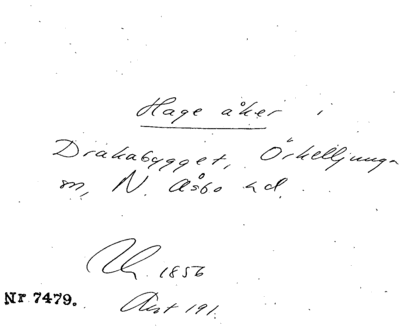 Hage åker i
Drakabygget, Örkelljunga
sn, N. Åsbo hd.
1856
Nr 7479.
191.